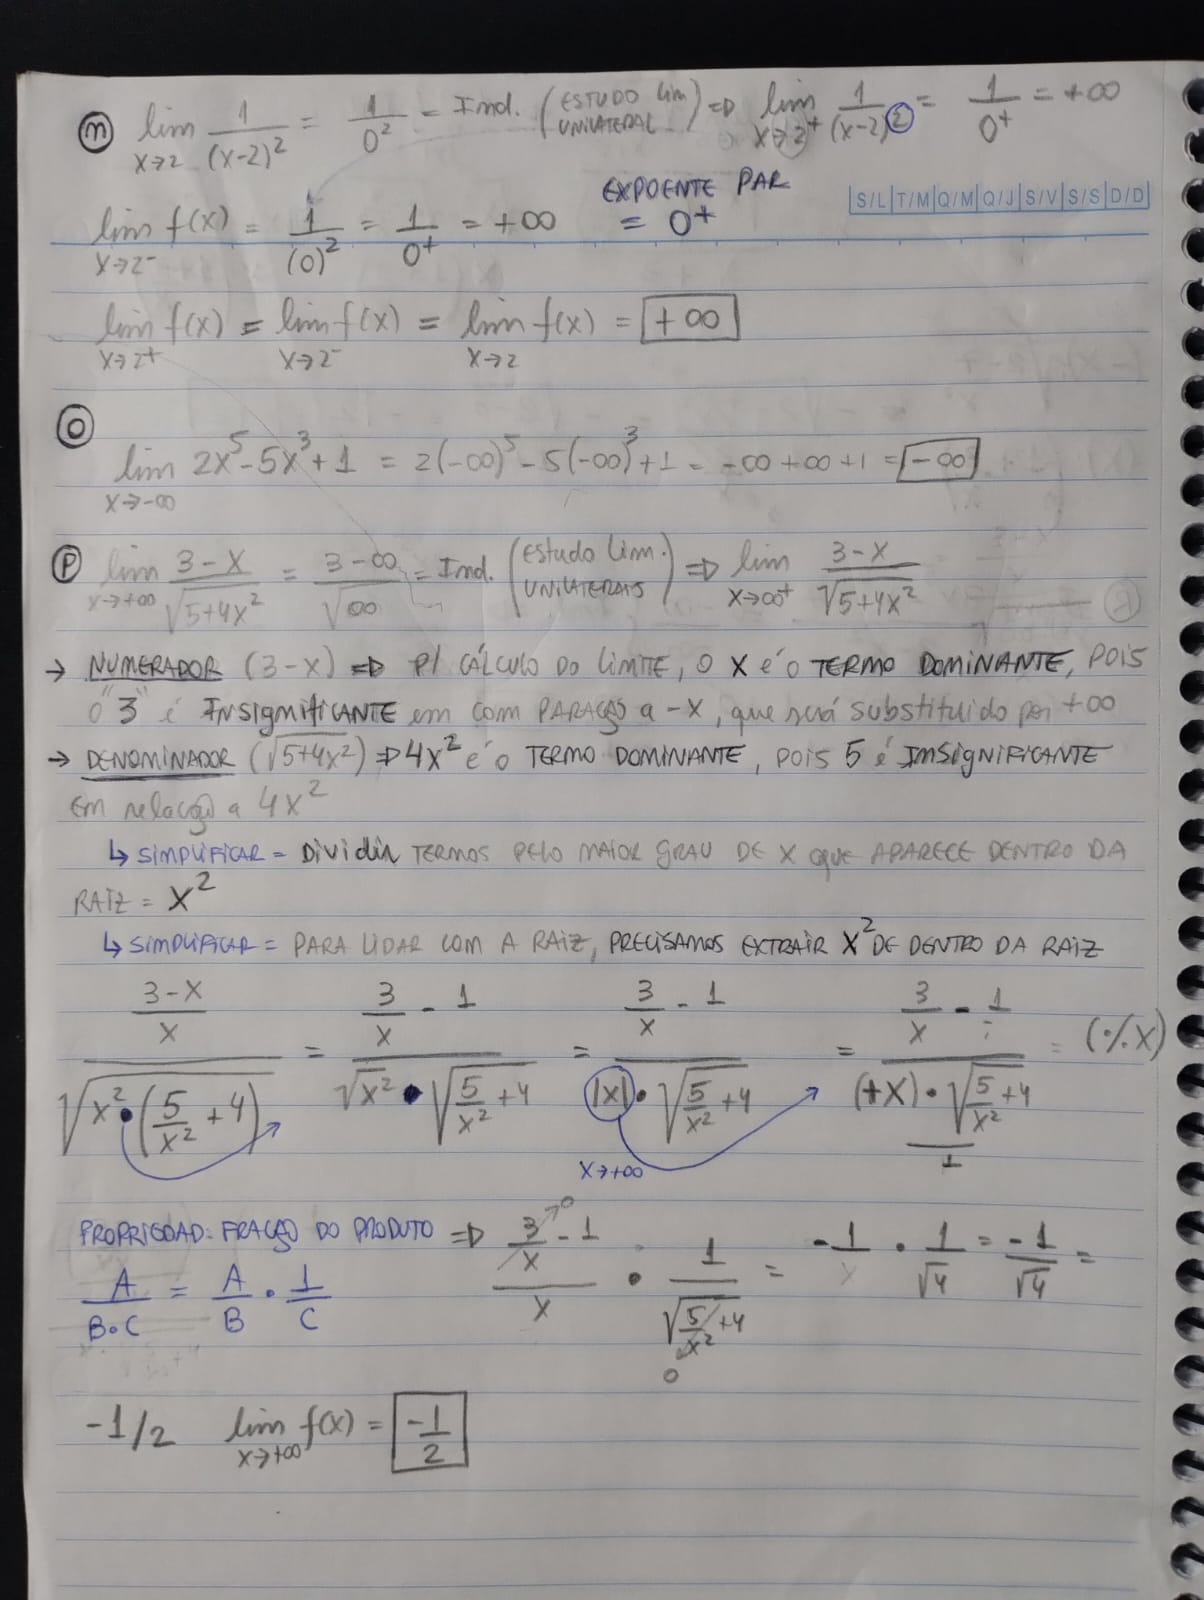 (m) lim x→2 1/(x-2)² = 1/0² = Ind. (ESTUDO lim UNILATERAL) ⇒ lim x→2⁺ 1/(x-2)² = 1/0⁺ = +∞
EXPOENTE PAR
= 0⁺
S/L T/M Q/M Q/J S/V S/S D/D
lim x→2⁻ f(x) = 1/(0)² = 1/0⁺ = +∞
lim x→2⁺ f(x) = lim x→2⁻ f(x) = lim x→2 f(x) = +∞
(O)
lim x→-∞ 2x⁵ - 5x³ + 1 = 2(-∞)⁵ - 5(-∞)³ + 1 = -∞ + ∞ + 1 = -∞
(P) lim x→+∞ 3-x/√5+4x² = 3-∞/√∞ = Ind. (Estudo Lim. UNILATERAIS) ⇒ lim x→∞⁺ 3-x/√5+4x²
→ NUMERADOR (3-x) ⇒ P/ CÁLCULO DO LIMITE, O X é o TERMO DOMINANTE, POIS
O "3" é INSIGNIFICANTE em COM PARAÇÃO a -X, que será substituido por +∞
→ DENOMINADOR (√5+4x²) ⇒ 4x² é o TERMO DOMINANTE, POIS 5 é IMSIGNIFICANTE
Em relação a 4x²
↳ SIMPLIFICAR = Dividir TERMOS PELO MAIOR GRAU DE X QUE APARECE DENTRO DA
RAIZ = X²
↳ SIMPLIFICAR = PARA LIDAR COM A RAIZ, PRECISAMOS EXTRAIR X² DE DENTRO DA RAIZ
3-x/x / √x²•(5/x² + 4) = 3/x - 1 / √x² • √5/x² + 4 = 3/x - 1 / |x| • √5/x² + 4 = 3/x - 1 / (+x) • √5/x² + 4 / 1 = (•/. X)
x→+∞
PROPRIEDAD: FRAÇÃO DO PRODUTO ⇒ 3/x - 1 / x • 1/√5/x² + 4 = -1/x • 1/√4 = -1/√4 =
0
A/B•C = A/B • 1/C
0
-1/2 lim x→+∞ f(x) = -1/2